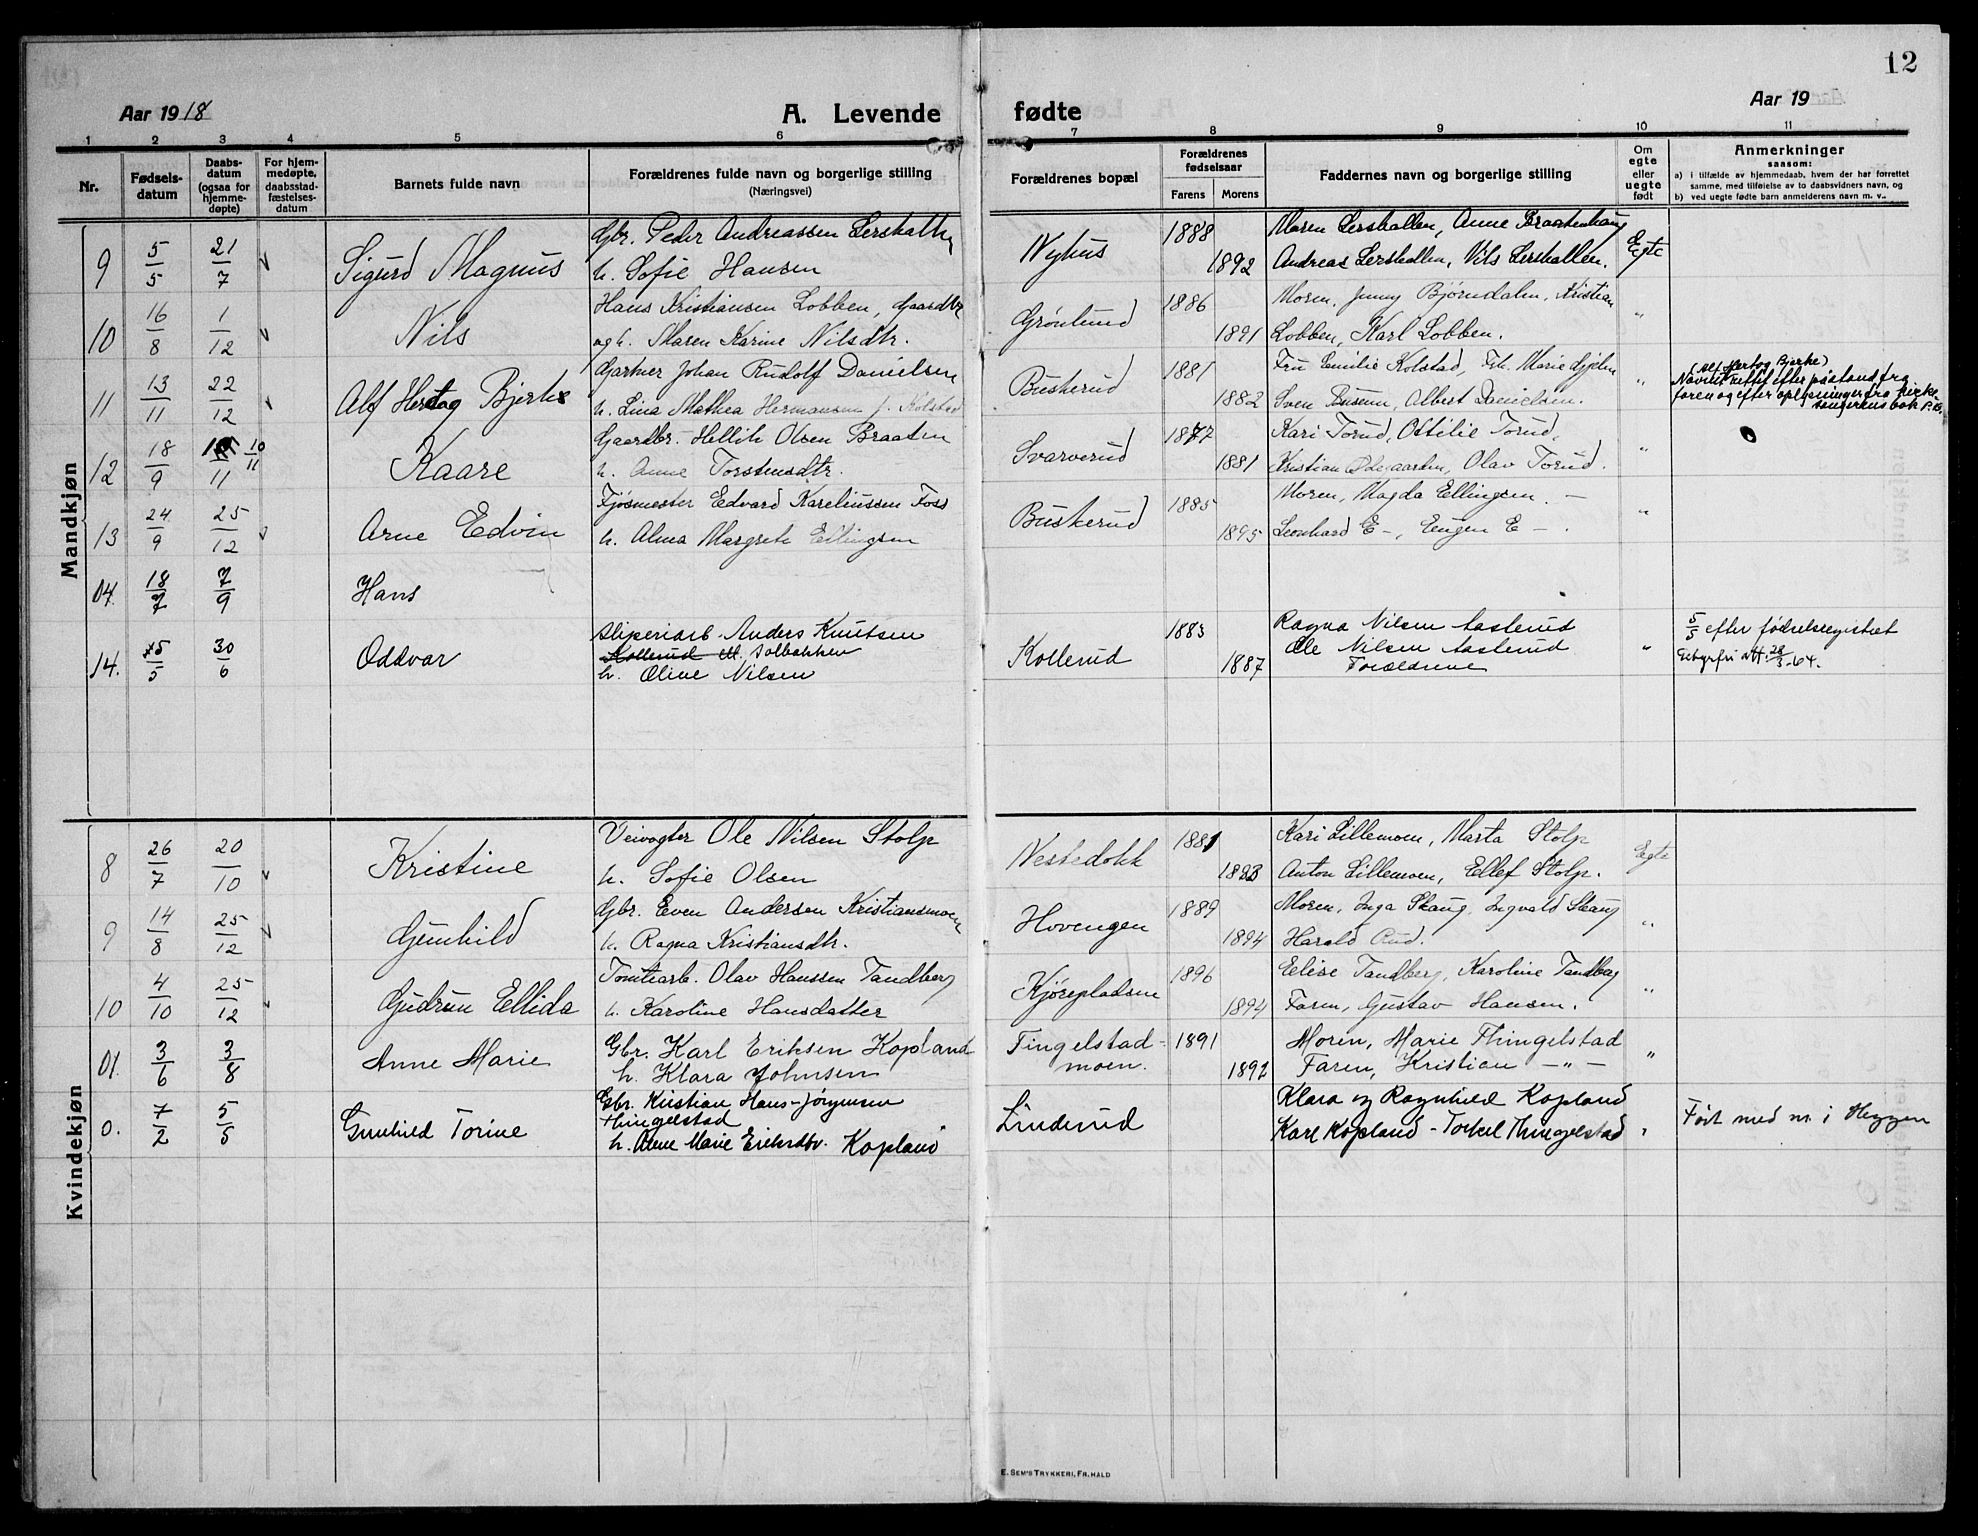 12
Aar 1918 A. Levende fødte Aar 19
1 2 3 4 5 6 7 8 9 10 11
Nr. Fødsels-datum Daabs-datum (ogsaa for hjemme-døpte) For hjem-medøpte, daabsstad-fæstelses-datum Barnets fulde navn Forældrenes fulde navn og borgerlige stilling (Næringsvei) Forældrenes bopæl Forældrenes fødselsaar Farens Morens Faddernes navn og borgerlige stilling Om egte eller uegte født Anmerkninger saasom:
a) i tilfælde av hjemmedaab, hvem der har forrettet samme, med tilføielse av to daabsvidners navn, og
b) ved uegte fødte barn anmelderens navn m. v..
Mandkjøn
9 5/5 21/7 Sigurd Magnus Gbr. Peder Andreassen Nyhus 1888 Moren Lershallen, Anne Braatenhaug Egte
h. Sofie Hansen 1892 Andreas Lershallen, Nils Lershallen.
10 16/8 1/12 Nils Hans Kristiansen Lobben, Gaardbr Grønlund 1886 Moren, Jenny Bjørndalen, Kristian "
og h. Maren Karine Nilsdtr. 1891 Lobben, Karl Lobben.
11 13/11 22/12 Alf Hertog Bjerke Gartner Johan Rudolf Danielsen Buskerud 1881 Fru Emilie Kolstad, Frk. Marie "
h. Lina Mathea Hermansen f. Kolstad 1882 Sven Buseun, Albert Danielsen.
(Alf Hertog Bjerke)
Navnet rettet efter paastand fra
faren og efter oplysninger fra kirke-
sangerens bok P.B.
12 18/9 11 10/11 Kaare Gaardbr. Hellik Olsen Braaten Svarverud 1877 Kari Torud, Ottilie Torud, "
h. Anne Torstensdtr. 1881 Kristian Ødegaarden, Olav Torud.
13 24/9 25/12 Arne Edvin Fjøsmester Edvard Kareliussen Foss Buskerud 1885 Moren, Magda Ellingsen. - "
h. Alma Margrete Ellingsen 1895 Leonhard E -, Eugen E - .
04. 18/7 7/9 Hans
14. 5/5 30/6 Oddvar Sliperiarb. Anders Knutsen Kollerud 1883 Ragna Nilsen Aasterud "
Kollerud Solbakken Ole Nilsen Aasterud
h. Oline Nilsen 1887 Forældrene
5/5 efter fødselsregistret
28/3-64.
Kvindekjøn
8 26/7 20/10 Kristine Veivogter Ole Nilsen Stolp Nestedokk 1881 Kari Lillemoen, Marta Stolp Egte
h. Sofie Olsen Anton Lillemoen, Ellef Stolp.
9 14/8 25/12 Gunhild Gbr. Even Andersen Kristiansmoen Hovengen 1889 Moren, Inga Skaug, Ingvald Skaug "
h. Ragna Kristiansdtr. 1894 Harald Rud.
10 4/10 25/12 Gudrun Ellida Tomtearb. Olav Hanssen Tandberg Kjørepladsen 1896 Elise Tandberg, Karoline Tandberg "
h. Karoline Hansdatter 1894 Faren, Gustav Hansen.
01. 3/6 3/8 Anne Marie Gbr. Karl Eriksen Kopland Tingelstad- 1891 Moren, Marie Thingelstad "
h. Klara Johnsen moen. 1892 Faren, Kristian - " -
0. 7/2 5/5 Gunhild Torine Gbr. Kristian Hans-Jørgensen Linderud Klara og Ragnhild Kopland
Thingelstad
h. Anne Marie Eriksdtr. Kopland Karl Kopland - Torkel Thingelstad "
Ført med nr. i Heggen
E. SEM'S TRYKKERI, FR.HALD